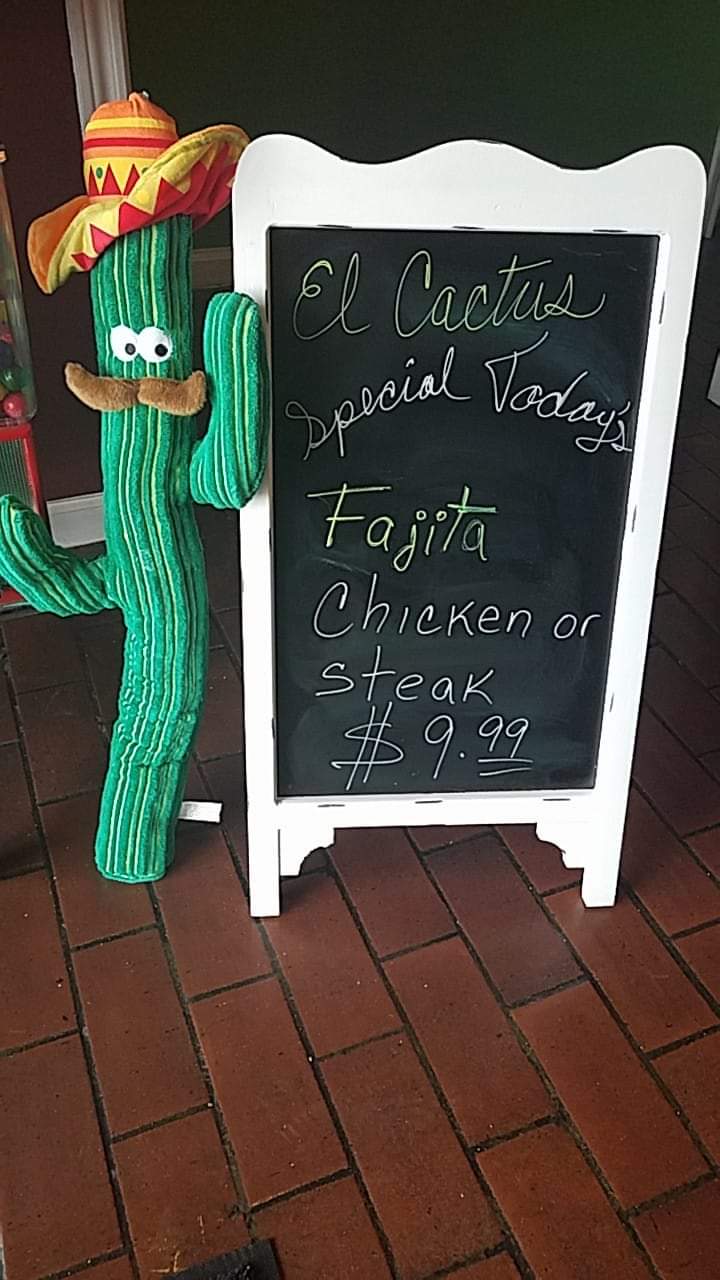 El Cactus
Special Today's
Fajita
Chicken or
steak
$ 9.99